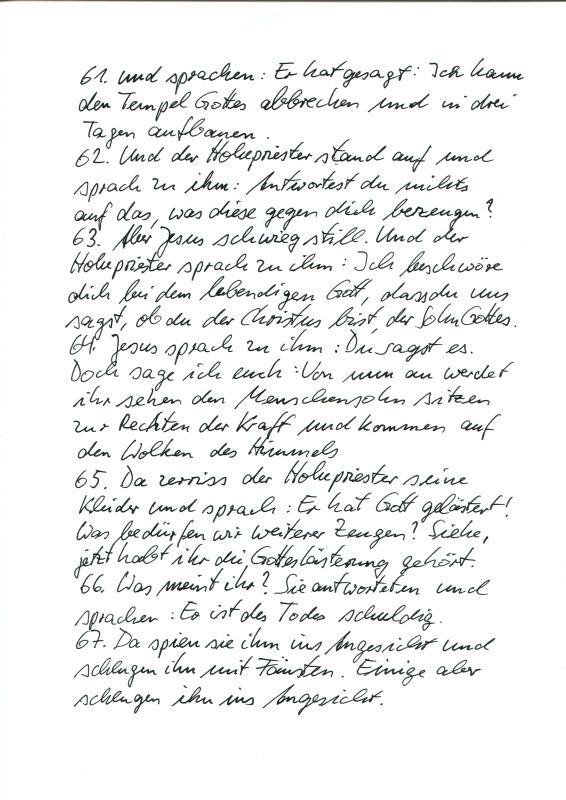 61. und sprachen: Er hat gesagt: Ich kann
den Tempel Gottes abbrechen und in drei
Tagen aufbauen.
62. Und der Hohepriester stand auf und
sprach zu ihm: Antwortest du nichts
auf das, was diese gegen dich bezeugen?
63. Aber Jesus schwieg still. Und der
Hohepriester sprach zu ihm: Ich beschwöre
dich bei dem lebendigen Gott, dass du uns
sagst, ob du der Christus bist, der Sohn Gottes.
64. Jesus sprach zu ihm: Du sagst es.
Doch sage ich euch: Von nun an werdet
ihr sehen den Menschensohn sitzen
zur Rechten der Kraft und kommen auf
den Wolken des Himmels
65. Da zerriss der Hohepriester seine
Kleider und sprach: Er hat Gott gelästert!
Was bedürfen wir weiterer Zeugen? Siehe,
jetzt habt ihr die Gotteslästerung gehört.
66. Was meint ihr? Sie antworteten und
sprachen: Er ist des Todes schuldig.
67. Da spien sie ihm ins Angesicht und
schlugen ihn mit Fäusten. Einige aber
schlugen ihn ins Angesicht.